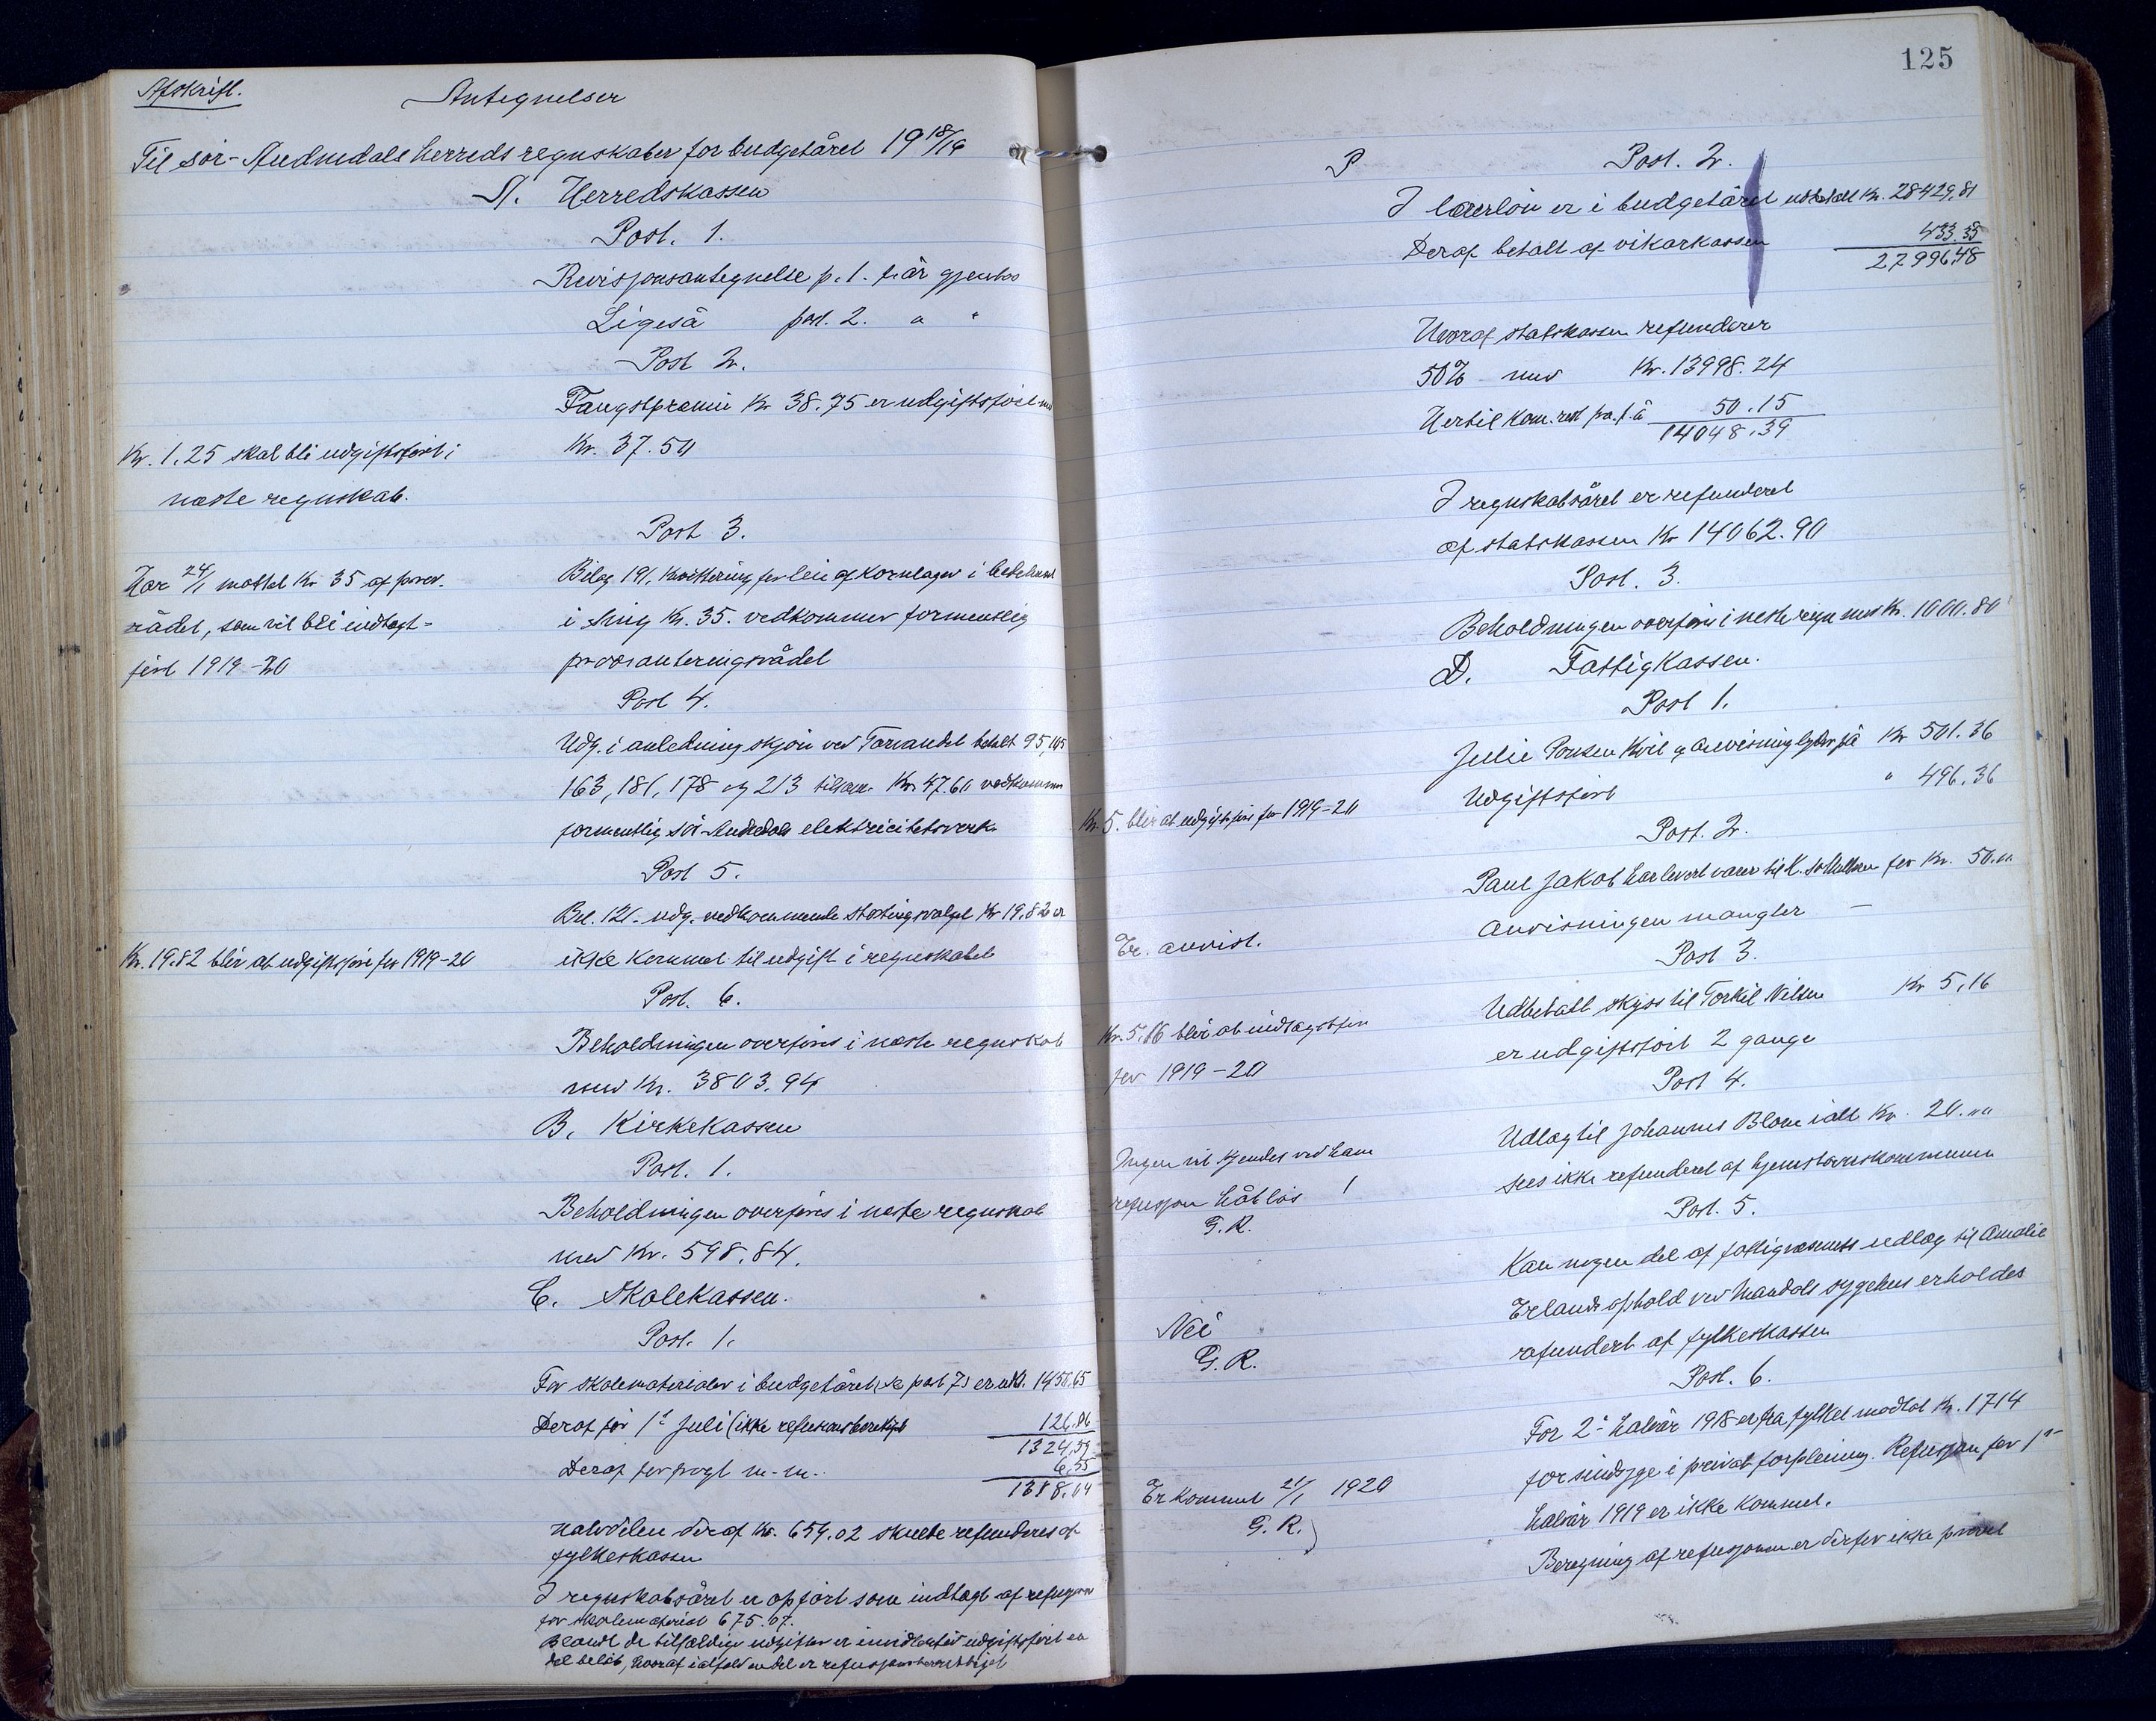 Afskrift.
Antegnelser
Til sör-Audnedals herreds regnskaber for budgetåret 1918/19
A. Herredskassen
Post. 1.
Revisjonsantegnelse p. 1. f. år gjentas
Ligeså post. 2. " "
Post 2.
Fangstpremie Kr 38.75 er udgiftsfört med
Kr. 37.50
Kr. 1.25 skal bli udgiftsfört i
næste regnskab.
Post 3.
Bilag 191. kvittering for leie af kornlager i bedehuset
i Sving Kr. 35. vedkommer formentlig
provianteringsrådet
Har 24/1 mottat Kr 35 af prov.
rådet, som vil bli indtægt-
fört 1919-20
Post 4.
Udg. i anledning skjön ved Tarvandet betalt 95, 145
163, 181, 178 og 213 tilsam. Kr. 47.60 vedkommer
formentlig sör-Audnedals elektricitetsverk
Post 5.
Bil. 121. udg. vedkommende stortingsvalget Kr 19.82 er
ikke kommet til udgift i regnskabet
Kr. 19.82 blir at udgiftsföre for 1919-20
Post. 6.
Beholdningen overföres i næste regnskab
med Kr. 3803.94
B. Kirkekassen
Post. 1.
Beholdningen overföres i neste regnskab
med Kr. 598.84.
C. Skolekassen.
Post. 1.
For skolematerialer i budgetåret (se post 7) er udb. 1450.65
Deraf för 1ste Juli (ikke refusionsberettiget 126.06
1324.59
Deraf for fragt m.m. 6.55
1318.04
Halvdelen deraf Kr. 659.02 skulde refunderes af
fylkeskassen
I regnskabsåret er opfört som indtægt af refusjon
for skolemateriel 675.07.
Blandt de tilfældige udgifter er imidlertid udgiftsfört en
del belöb, hvoraf ialfald en del er refusjonsberettiget
125
P Post. 2.
I lærerlön er i budgetåret udbetalt Kr. 28429.81
Deraf betalt af vikarkassen 433.33
27996.48
Hvoraf statskassen refunderer
50% med Kr. 13998.24
Hertil kom. rest fra f. å 50.15
14048.39
I regnskabsåret er refunderet
af statskassen Kr 14062.90
Post. 3.
Beholdningen overföres i neste regn. med Kr. 1000.80
D. Fattigkassen.
Post 1.
Julie Tonsen Kvil og anvisning lyder på Kr 501.36
Udgiftsfört " 496.36
Kr. 5. blir at udgiftsföre for 1919-20
Post. 2.
Paul Jakob har levert varer til for Kr. 50.00
Anvisningen mangler —
Er anvist.
Post 3.
Udbetalt skyss til Torkil Nilsen Kr 5.16
er udgiftsfört 2 gange
Kr. 5.16 blir at indtægtsföre
for 1919-20
Post 4.
Udlæg til Johannes Blom ialt Kr. 20.00
sees ikke refunderet af hjemstavnskommunen
Ingen vil kjendes ved ham
refusjon håblös !
G. R.
Post. 5.
Kan nogen del af fattigvæsenets udlæg til Amalie
Erlands ophold ved Mandals sygehus erholdes
refundert af fylkeskassen
Nei
G. R.
Post. 6.
For 2det halvår 1918 er fra fylket modtat Kr. 1714
for sindsyge i privat forpleining. Refusjon for 1ste
halvår 1919 er ikke kommet.
Beregning af refusjonen er derfor ikke prövet
Er kommet 21/1 1920
G. R.